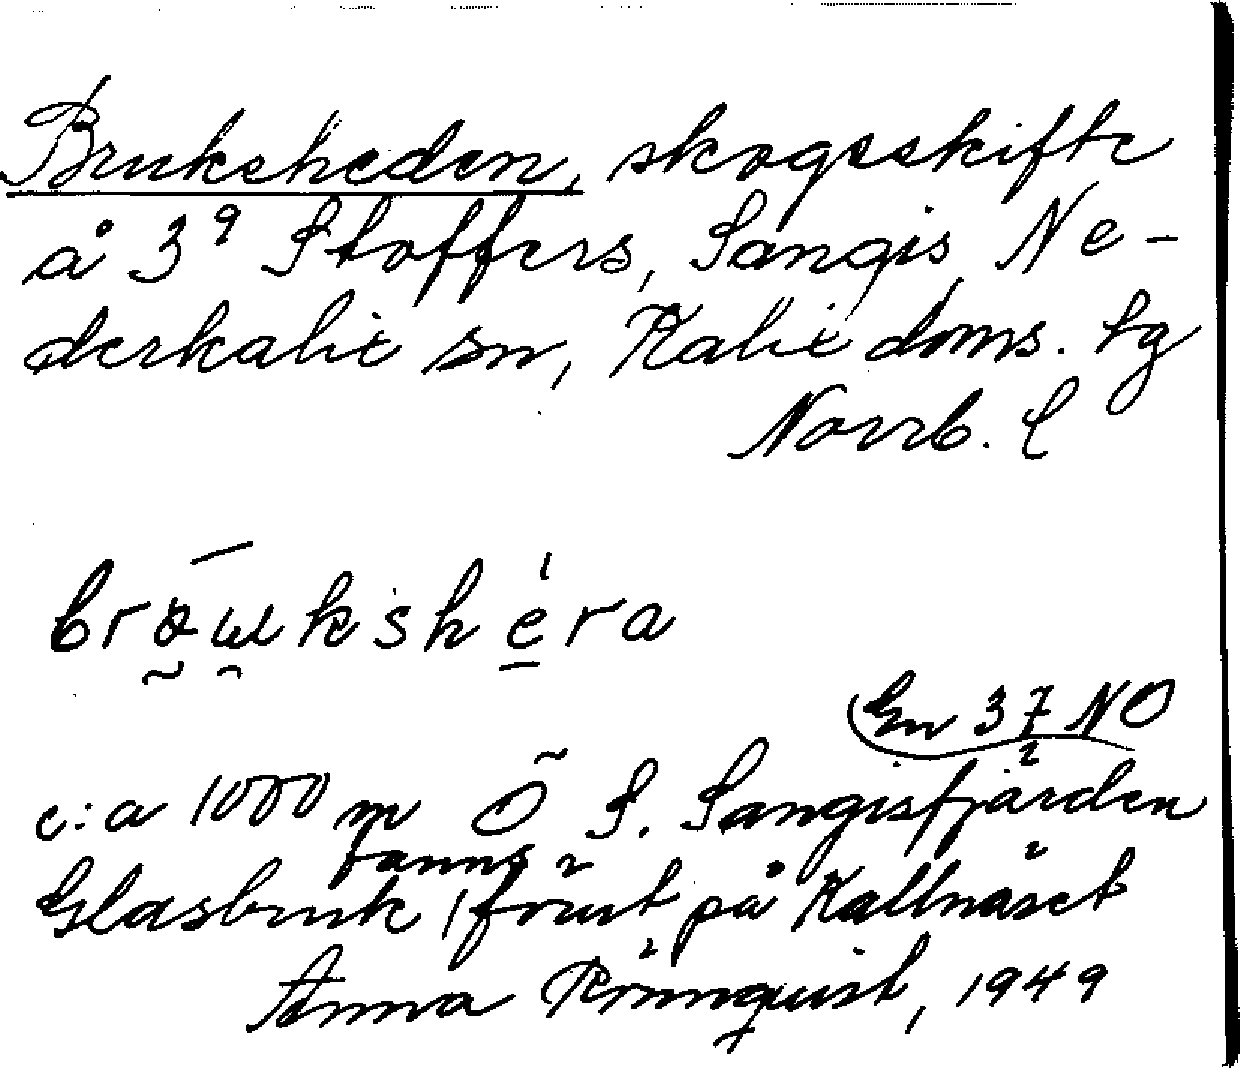 Bruksheden, skogsskifte
å 3⁹ Stoffers, Sangis, Ne-
derkalix sn, Kalix doms. tg
Norrb. l
Gn 37 NO
c:a 1000 m Ö S. Sangisfjärden
fanns
Glasbruk förut på Kallnäset
Anna Rönnquist, 1949